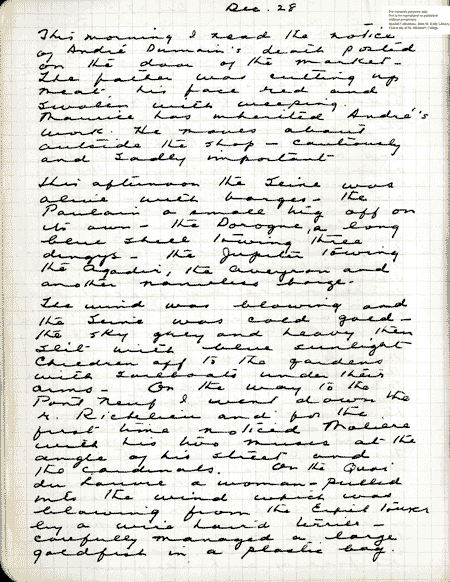 Dec. 28
For research purposes only.
This morning I read the notice
of André Dumain's death posted
on the door of the market.
The father was cutting up
meat, his face red and
swollen with weeping.
Maurice has inherited André's
work. He moves about
outside the shop – cautiously
and sadly important
This afternoon the Seine was
alive with barges – the
Paulain a small tug off on
its own – the Dorogne, a long
blue shell towing three
dingys – the Jupiter towing
the Agadir, the Aveyron and
another nameless barge.
The wind was blowing and
the Seine was cold gold –
the sky grey and heavy then
slit with blue sunlight
Children off to the gardens
with sailboats under their
arms – On the way to the
Pont Neuf I went down the
r. Richelieu and for the
first time noticed Moliere
with his two muses at the
angle of his street and
the Cardinals. On the Quai
du Louvre a woman – pulled
into the wind which was
blowing from the Eiffel Tower
by a wire hair'd terrier –
carefully managed a large
goldfish in a plastic bag.